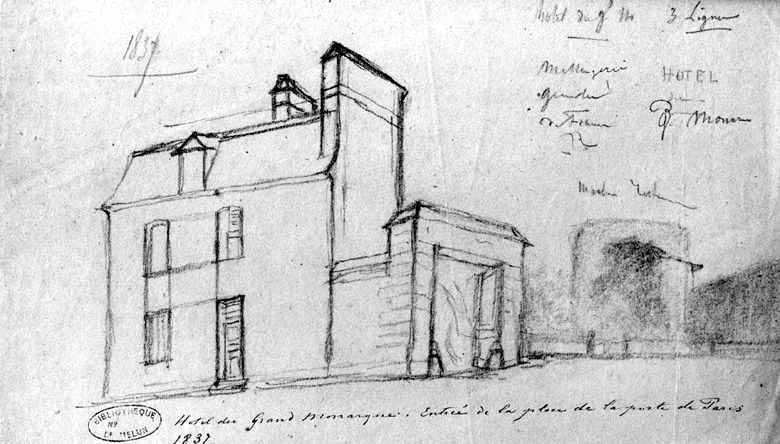 1837
hotel du gd M 3 Lignes
Messagerie
générale
de France
HOTEL
du
Gd Monar
BIBLIOTHEQUE
DE MELUN
Hotel du Grand Monarque. Entrée de la place de la porte de Paris
1837